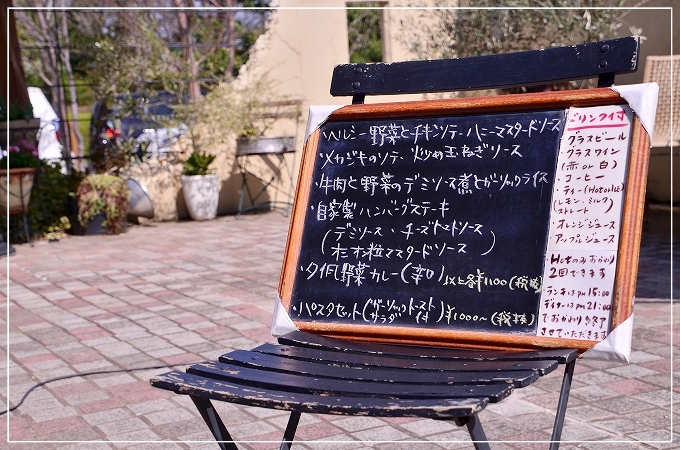 ・ヘルシー野菜とチキンソテーハニーマスタードソース
・メカジキのソテー 炒め玉ねぎソース
・牛肉と野菜のデミソース煮とガーリックライス
・自家製ハンバーグステーキ
(デミソース・チーズトマトソース
オニオン粒マスタードソース)
・夕仴野菜カレー(辛口) 以上各¥1100(税抜)
・パスタセット(ガーリックトースト サラダ 付)¥1000〜(税抜)
ドリンク付
・グラスビール
・グラスワイン
(赤 or 白)
・コーヒー
・ティー(HOT or ICE)
(レモン・ミルク)
ストレート
・オレンジジュース
アップルジュース
Hotのみおかわり
2回できます
ランチは PM 15:00
ディナーは PM 21:00
でおかわり終了
させていただきます